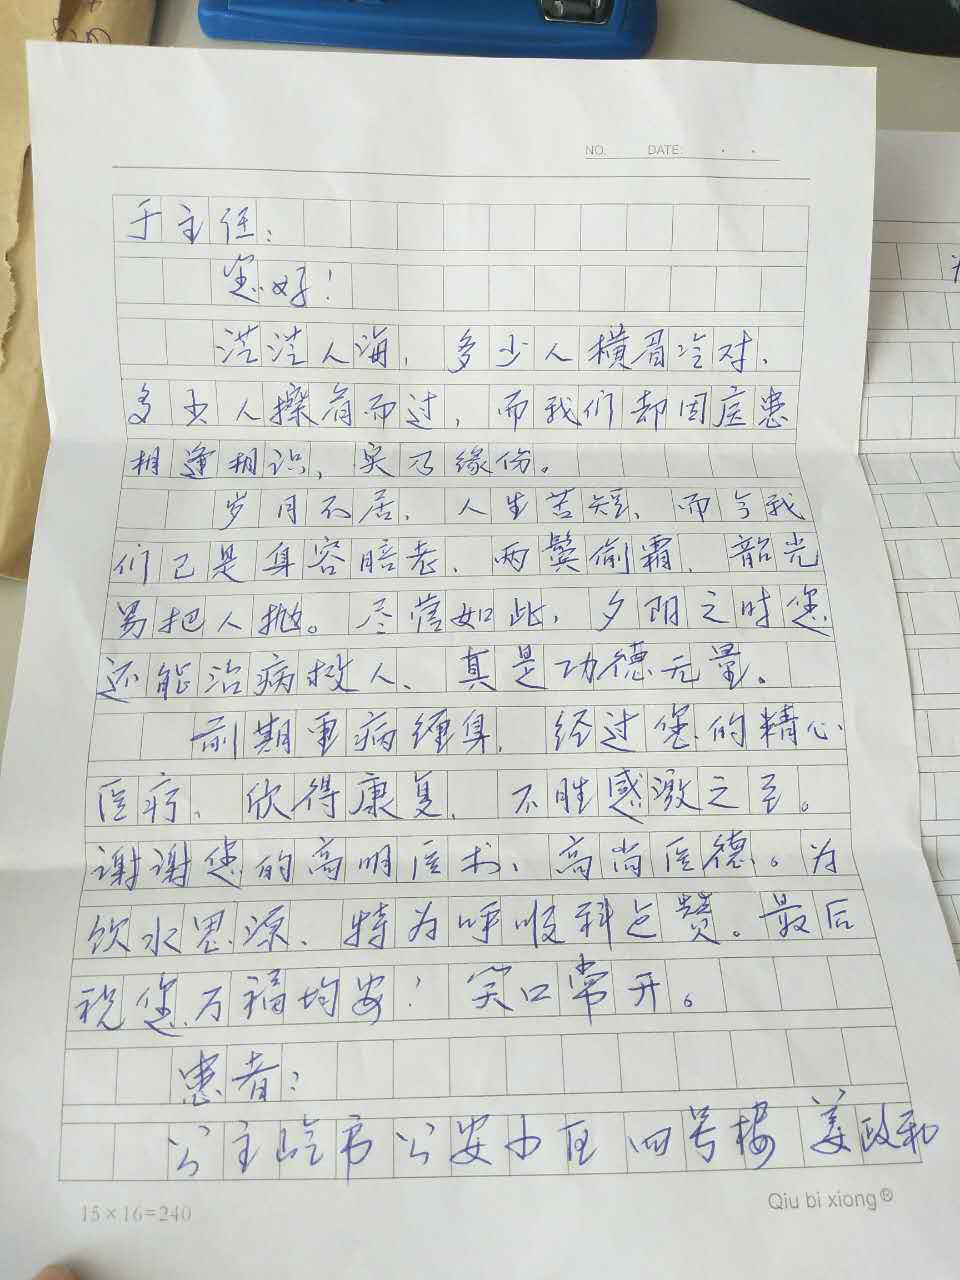 NO.  DATE:  ·  ·
于主任：
您好！
茫茫人海，多少人横眉冷对，
多少人擦肩而过，而我们却因医患
相逢相识，实乃缘份。
岁月不居，人生苦短，而今我
们已是身容暗老，两鬓偷霜，韶光
易把人抛。尽管如此，夕阳之时您
还能治病救人、真是功德无量。
前期重病缠身，经过您的精心
医疗、欣得康复，不胜感激之至。
谢谢您的高明医术、高尚医德。为
饮水思源、特为呼吸科点赞。最后
祝您万福均安！笑口常开。
患者：
公主岭市公安小区 四号楼 姜政和
15×16=240
Qiu bi xiong®